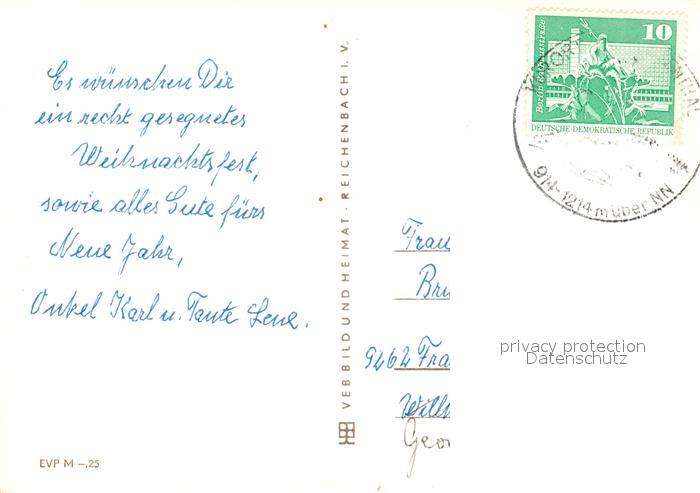 Es wünschen Dir
ein recht gesegnetes
Weihnachtsfest,
sowie alles Gute fürs
Neue Jahr,
Onkel Karl u. Tante Lene.
EVP M –,25
VEB BILD UND HEIMAT · REICHENBACH I. V.
10
Berlin Rathausstraße
DEUTSCHE DEMOKRATISCHE REPUBLIK
KURORT
914-1214 m über NN
Frau
Bru
9262 Fra
Wilh
Geor
privacy protection
Datenschutz